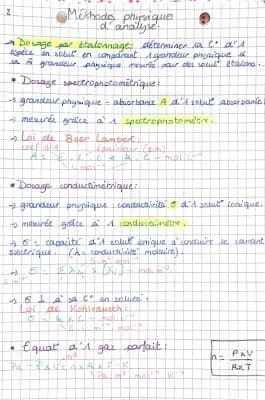 2
Méthodes physiques
d'analyse.
→ Dosage par étalonnage: déterminer la C° d'1
espèce en solut° en comparant 1 grandeur physique à
la m̂ grandeur physique mesurée pour des solut° étalons.
• Dosage spectrophotométrique:
→ grandeur physique = absorbance A d'1 solut° absorbante.
→ mesurée grâce à 1 spectrophotomètr.
→ Loi de Beer Lambert:
épaisseur (cm)
• Dosage conductimétrique:
→ grandeur physique: conductivité σ d'1 solut° ionique.
→ mesurée grâce à 1 conductimètre.
→ σ = capacité d'1 solut° ionique à conduire le courant
électrique. (λ = conductivité molaire).
→ σ à sa C° en soluté:
Loi de Kohlrausch:
• Equat° d'1 gaz parfait:
n = P x V
R x T